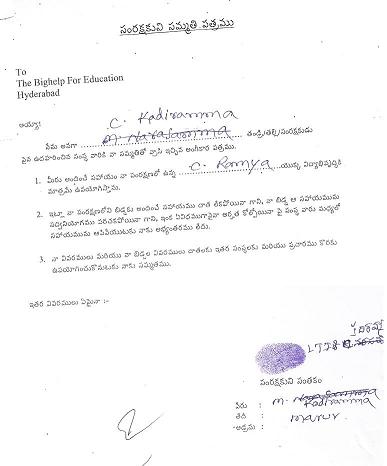 సంరక్షకుని సమ్మతి పత్రము
To
The Bighelp For Education
Hyderabad
అయ్యా!
C. Kadiramma
మేము అనగా M. Narasamma తండ్రి/తల్లి/సంరక్షకుడు
పైన ఉదహరించిన సంస్థ వారికి నా సమ్మతితో వ్రాసి ఇచ్చిన అంగీకార పత్రము.
1. మీరు అందించే సహాయం నా సంరక్షణలో ఉన్న C. Ramya యొక్క విద్యాభివృద్ధికి
మాత్రమే ఉపయోగిస్తాను.
2. ఇట్లా నా సంరక్షణలోని బిడ్డకు అందించే సహాయము చాలక లేకపోయినా గాని, నా బిడ్డ ఆ సహాయమును
సద్వినియోగము పరచకపోయినా గాని, ఇంక ఏవిధముగానైనా అర్హత కోల్పోయినా పై సంస్థ వారు మధ్యలో
సహాయమును ఆపివేయుటకు నాకు అభ్యంతరము లేదు.
3. నా వివరములు మరియు నా బిడ్డల వివరములు దాతలకు ఇతర సంస్థలకు మరియు ప్రచారము కొరకు
ఉపయోగించుకొనుటకు నాకు సమ్మతము.
ఇతర వివరములు ఏమైనా :-
సంరక్షకుని సంతకం
పేరు : M. Narasamma
Kadiramma
తేది :
అడ్రసు : manur.